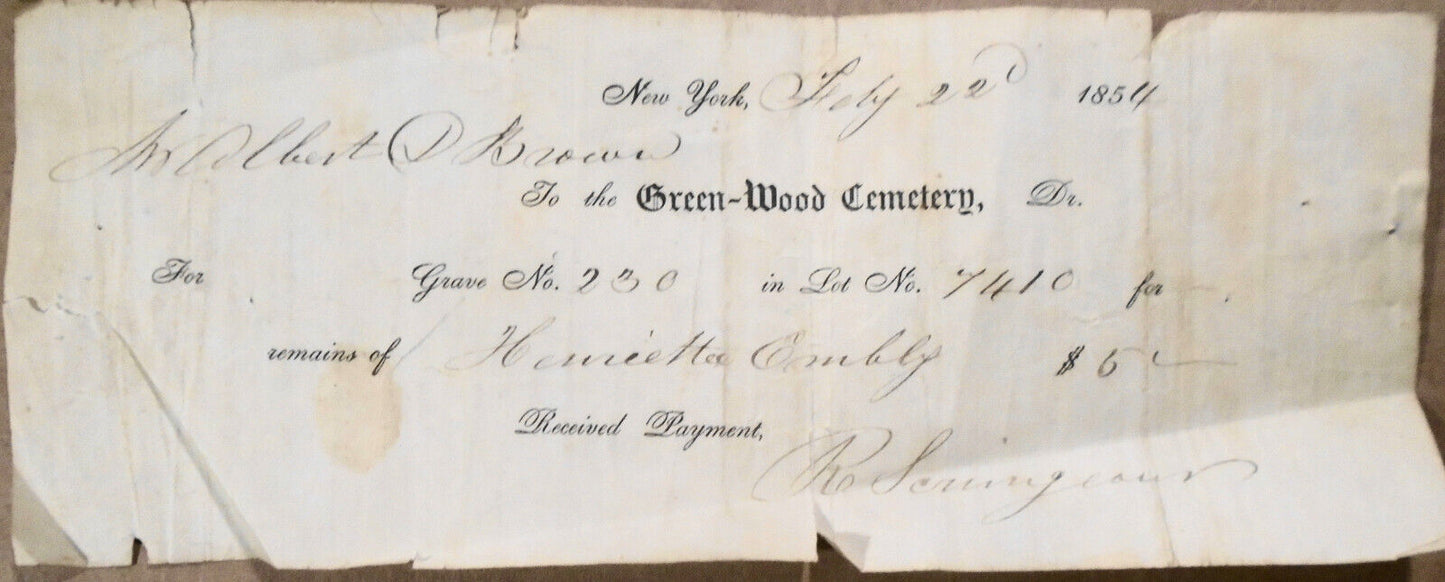 New York, Feby 22d 1854
Mr Albert D Brown
To the Green-Wood Cemetery, Dr.
For Grave No. 230 in Lot No. 7410 for
remains of Henrietta Embly $ 5 —
Received Payment,
R Scrimgeour